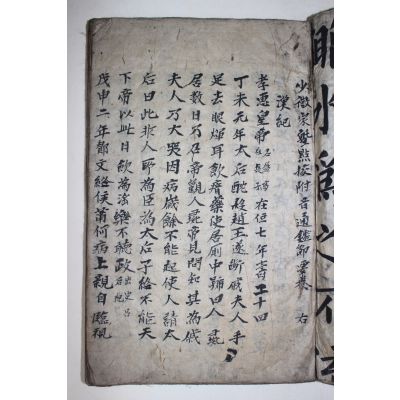 少微家塾點校附音通鑑節要卷 右
漢紀
孝惠皇帝 在位七年壽二十四
丁未元年太后酖殺趙王遂斷戚夫人手
足去眼煇耳飮瘖藥使居厠中踊曰人彘
居數日乃召帝觀人彘帝見問知其爲戚
夫人乃大哭因病歲餘不能起使人請太
后曰此非人所爲臣爲太后子終不能天
下帝以此日飮爲淫樂不聽政
戊申二年酇文終侯蕭何病上親自臨視